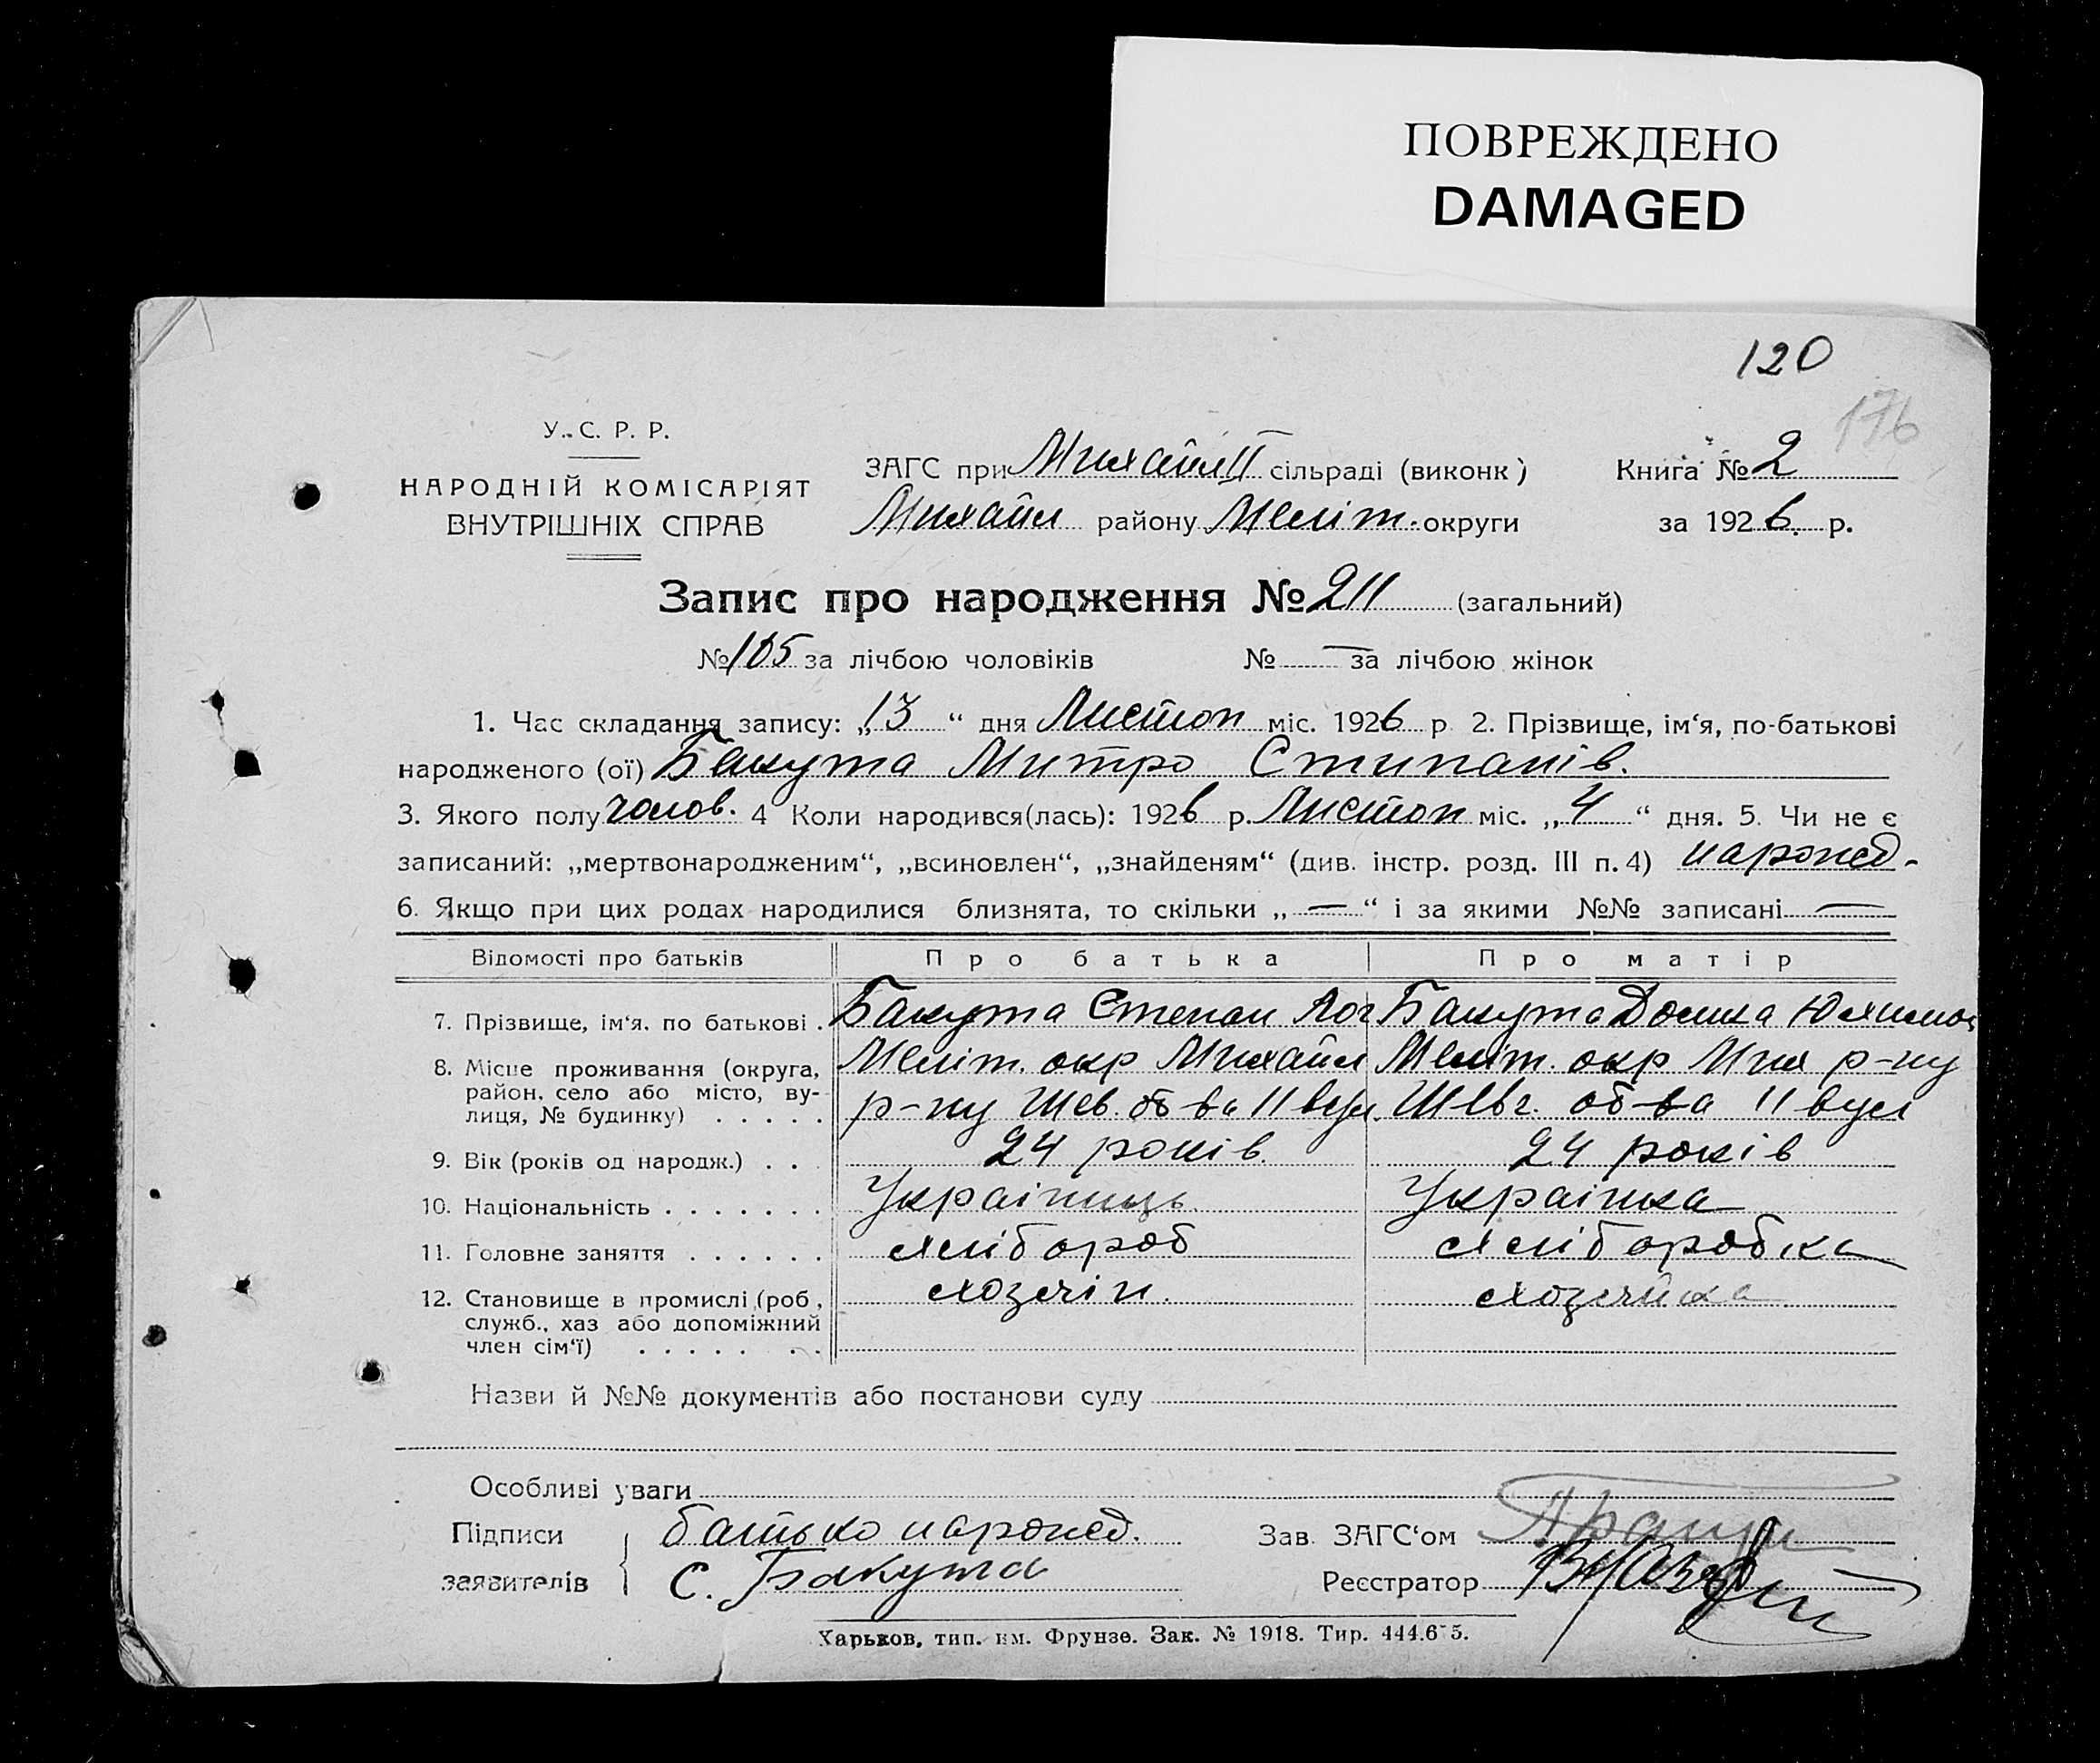 ПОВРЕЖДЕНО
DAMAGED
120
176
У. С. Р. Р.
НАРОДНІЙ КОМІСАРІЯТ
ВНУТРІШНІХ СПРАВ
ЗАГС при Михайл II сільраді (виконк) Книга № 2
Михайл району Меліт. округи за 1926. р.
Запис про народження № 211 (загальний)
№ 105 за лічбою чоловіків № — за лічбою жінок
1. Час складання запису: „13“ дня Листоп міс. 1926 р 2. Прізвище, ім‘я, по-батькові
народженого (ої) Бакута Митро Стипанів.
3. Якого полу чолов. 4 Коли народився(лась): 1926 р. Листоп міс. „4“ дня. 5. Чи не є
записаний: „мертвонародженим“, „всиновлен“, „знайденям“ (див. інстр. розд. III п. 4) нарожед.
6. Якщо при цих родах народилися близнята, то скільки „—“ і за якими №№ записані —
Відомості про батьків Про батька Про матір
7. Прізвище, ім‘я, по батькові . Бакута Степан Бакута Домка
8. Місце проживання (округа, район, село або місто, вулиця, № будинку) . . . . . Меліт. окр Михайл Меліт. окр Мих р-ну
р-ну Шев. об-ва 11 вул. Шевч. об-ва 11 вул
9. Вік (років од народж.) . . 24 років. 24 років
10. Національність . . . . . . . Украінець Украінка
11. Головне заняття . . . . . . хлібороб хліборобка
12. Становище в промислі (роб, служб., хаз або допоміжний член сім‘ї) . . . . . . . хозяін. хозяйка
Назви й №№ документів або постанови суду
Особливі уваги
Підписи заявителів батько нарожед.
С. Бакута
Зав. ЗАГС‘ом
Реєстратор
Харьков, тип. им. Фрунзе. Зак. № 1918. Тир. 444.6 5.